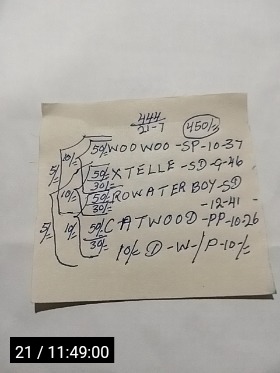 444
21-7
450/=
50/= WOO WOO - SP - 10-37
5/= 10/= 50/= XTELLE - SD - 9-46
30/=
10/= 50/= ROWATERBOY - SD
30/= - 12-41 -
5/= 10/= 50/= CATWOOD - PP - 10-26
30/=
10/= D - W - / P - 10-/=
21 / 11:49:00